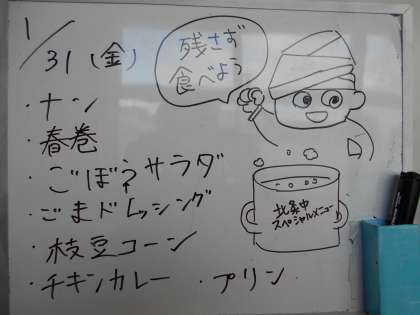 1/31(金)
・ナン
・春巻
・ごぼうサラダ
・ごまドレッシング
・枝豆コーン
・チキンカレー ・プリン
残さず
食べよう
北条中
スペシャルメニュー